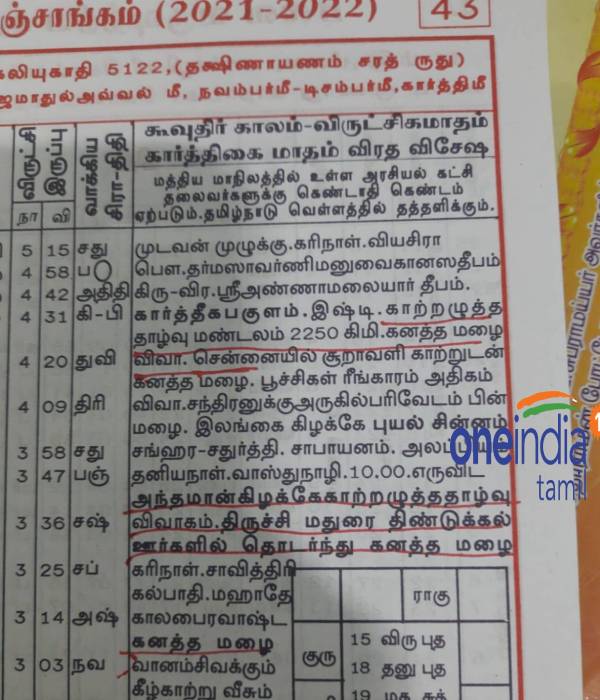 ஞ்சாங்கம் (2021-2022) 43
கலியுகாதி 5122,(தக்ஷிணாயணம் சரத் ருது)
ஜமாதுல்அவ்வல் மீ, நவம்பர்மீ-டிசம்பர்மீ,கார்த்திமீ
விருட்சி இருப்பு வாக்கிய கிரா-திதி
கூவுதிர் காலம்-விருட்சிகமாதம்
கார்த்திகை மாதம் விரத விசேஷ
மத்திய மாநிலத்தில் உள்ள அரசியல் கட்சி
தலைவர்களுக்கு கெண்டாதி கெண்டம்
ஏற்படும்.தமிழ்நாடு வெள்ளத்தில் தத்தளிக்கும்.
நா வி
5 15 சது முடவன் முழுக்கு.கரிநாள்.வியசிரா
4 58 ப〇 பௌ.தர்மஸாவர்ணிமனுவைகானஸதீபம்
4 42 அதிதி கிரு-விர.ஸ்ரீஅண்ணாமலையார் தீபம்.
4 31 கி-பி கார்த்தீகபகுளம்.இஷ்டி.காற்றழுத்த
தாழ்வு மண்டலம் 2250 கிமி.கனத்த மழை
4 20 துவி விவா. சென்னையில் சூறாவளி காற்றுடன்
கனத்த மழை. பூச்சிகள் ரீங்காரம் அதிகம்
4 09 திரி விவா.சந்திரனுக்குஅருகில்பரிவேடம் பின்
மழை. இலங்கை கிழக்கே புயல் சின்னம்
3 58 சது சங்ஹர-சதுர்த்தி. சாபாயனம். அலம்
3 47 பஞ் தனியநாள்.வாஸ்துநாழி.10.00.எருவிட
அந்தமான்கிழக்கேகாற்றழுத்ததாழ்வு
3 36 சஷ் விவாகம்.திருச்சி மதுரை திண்டுக்கல்
ஊர்களில் தொடர்ந்து கனத்த மழை
3 25 சப் கரிநாள்.சாவித்திரி
கல்பாதி.மஹாதே
3 14 அஷ் காலபைரவாஷ்ட
கனத்த மழை
3 03 நவ வானம்சிவக்கும்
கீழ்காற்று வீசும்
ராகு
குரு
15 விரு புத
18 தனு புத
19
oneindia
tamil